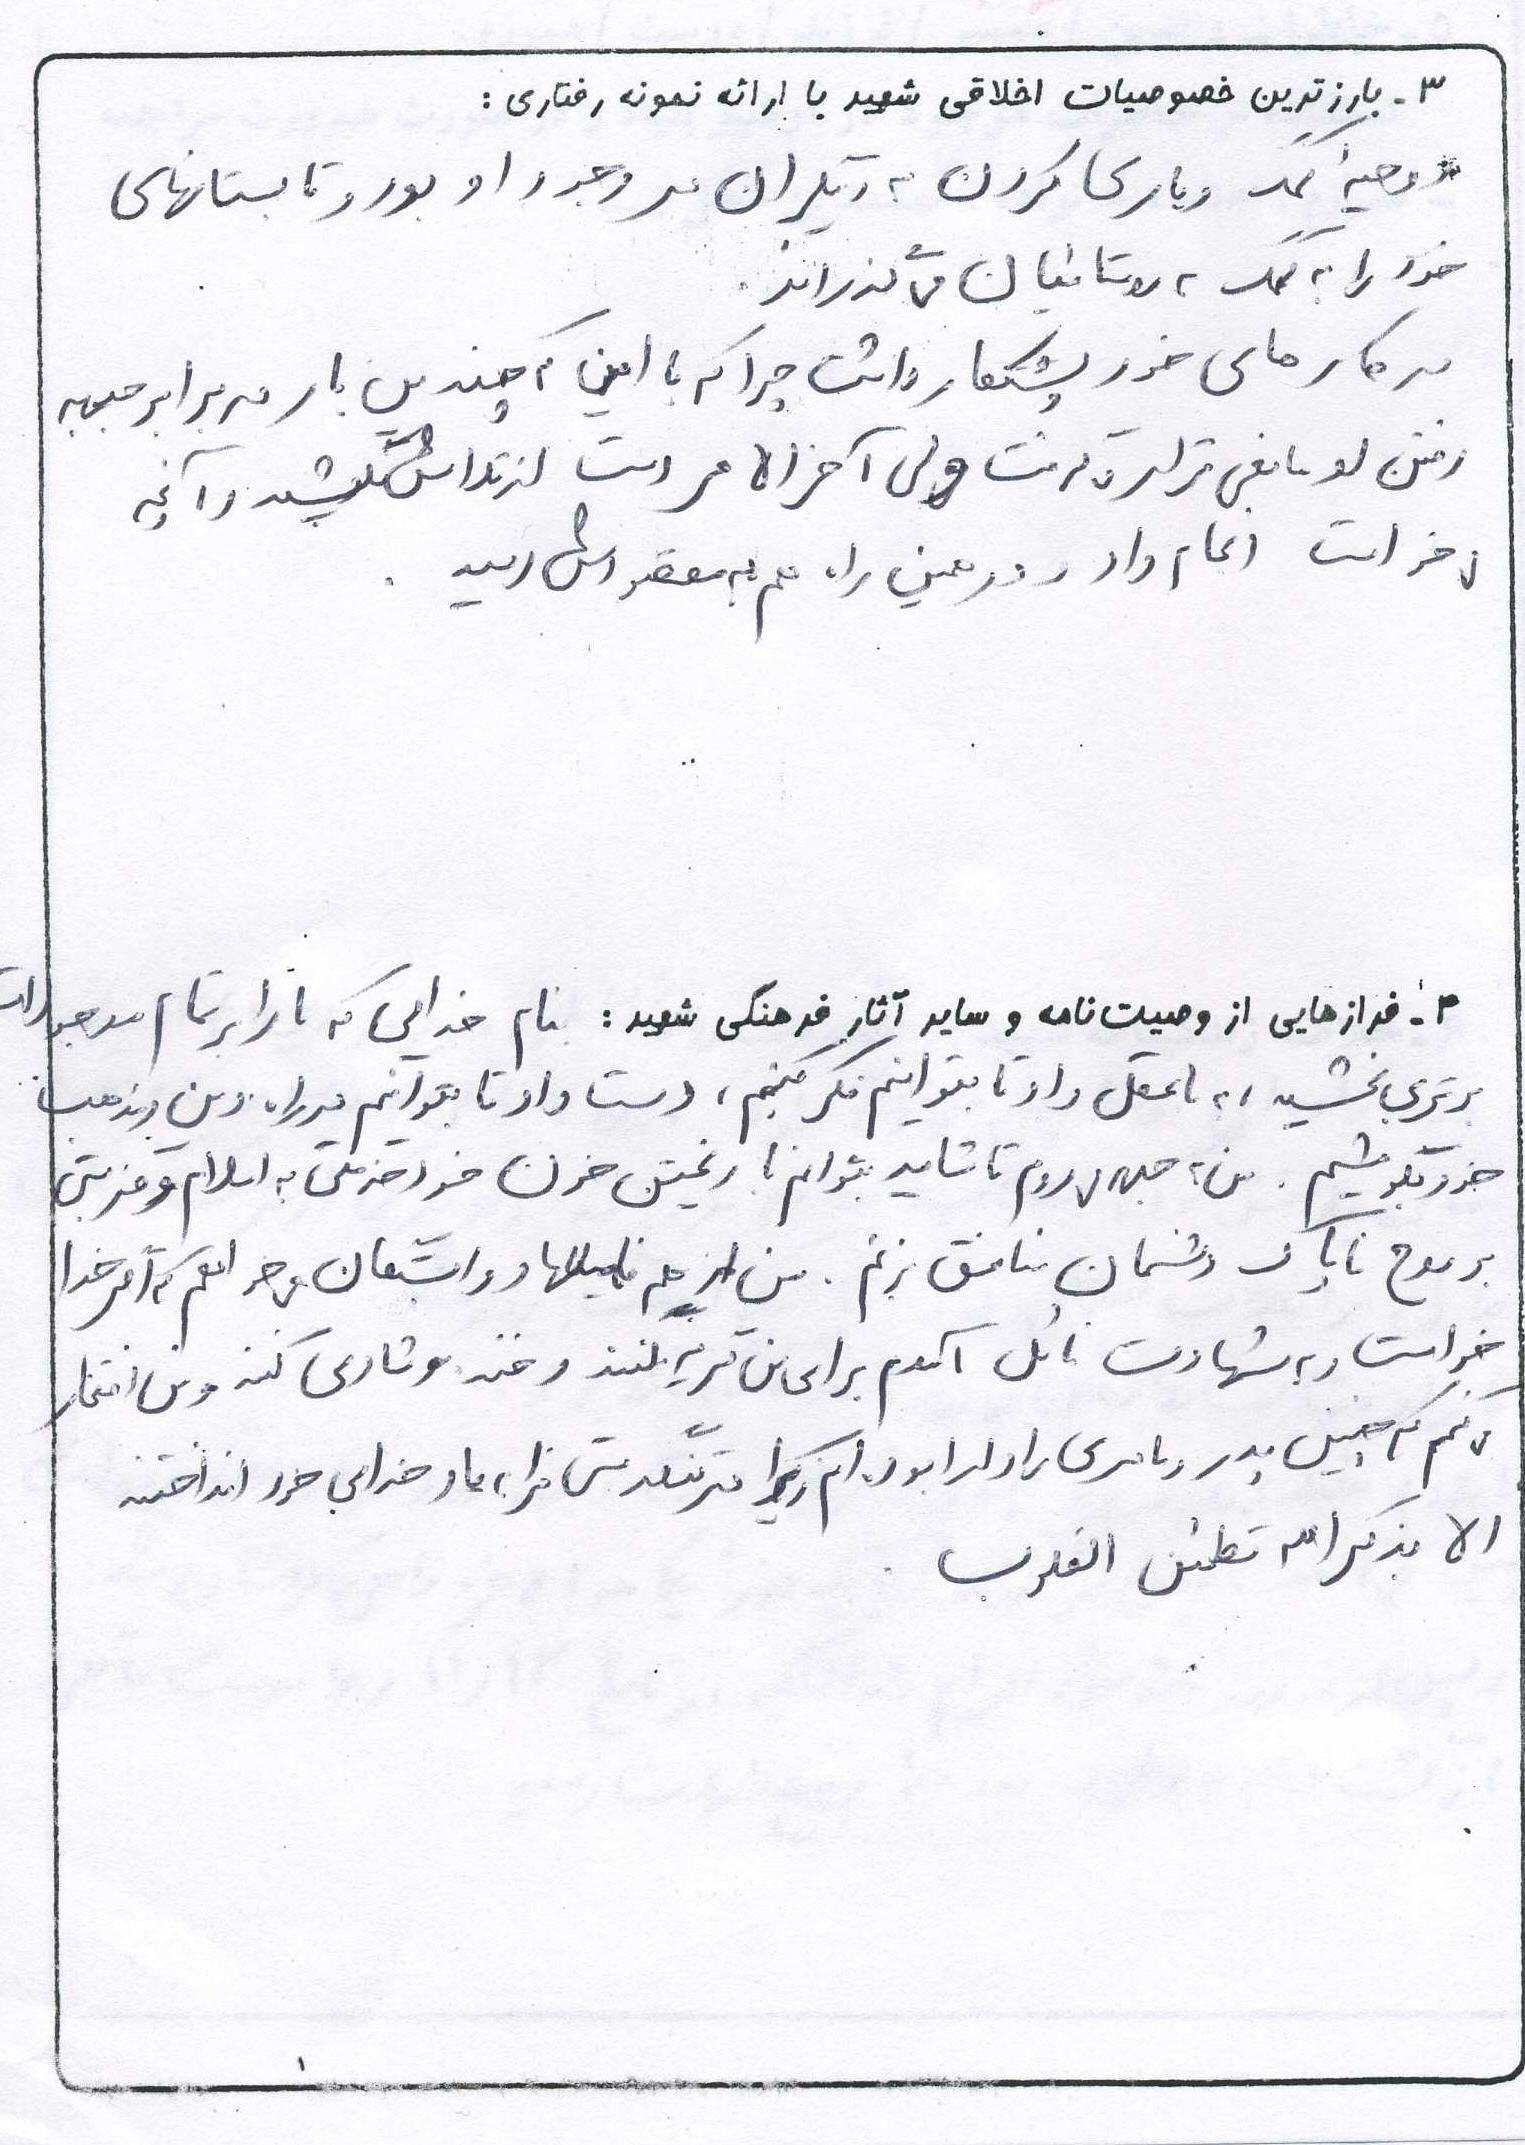 ۳- بارزترین خصوصیات اخلاقی شهید با ارائه نمونه رفتاری :
روحیه کمک و یاری کردن به دیگران در وجود او بود و تابستانهای
خود را به کمک به روستائیان می گذراند .
در کارهای خود پشتکار داشت چرا که با این که چندین بار در برابر جبهه
رفتن او مانعی قرار گرفت ولی آخرالامر دست از تلاش نکشید و آنچه
می خواست انجام داد و در همین راه هم به مقصودش رسید .
۴- فرازهایی از وصیت‌نامه و سایر آثار فرهنگی شهید : بنام خدایی که ما را بر تمام موجودات
برتری بخشید ، به ما عقل داد تا بتوانیم فکر کنیم ، دست داد تا بتوانیم در راه دین و مذهب
خود بکوشیم . من به جبهه می روم تا شاید بتوانم با ریختن خون خود خدمتی به اسلام و ضربتی
بر روح ناپاک دشمنان منافق بزنم . من از همه فامیلها و دوستان می خواهم که اگر خدا
خواست و به شهادت نائل آمدم برای من گریه نکنند و خنده و شادی کنند و من افتخار
می کنم که چنین پدر و مادری را دارا بوده ام زیرا مرا به یاد خدای خود انداختند
الا بذکر الله تطمئن القلوب .
۱